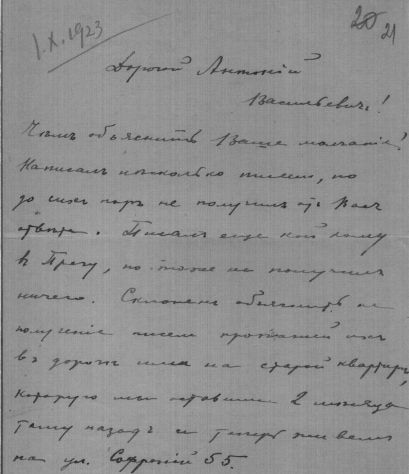 1.X.1923
20 21
Дорогой Антоній
Васильевичъ!
Чѣмъ объяснить Ваше молчаніе?
Написалъ нѣсколько писемъ, но
до сихъ поръ не получилъ отъ Васъ
отвѣта. Писалъ еще кой кому
въ Прагу, но тоже не получилъ
ничего. Склоненъ объяснить не
полученіе писем пропажей ихъ
въ дорогѣ или на старой квартирѣ,
которую мы оставили 2 мѣсяца
тому назадъ и теперь живемъ
на ул. 55.